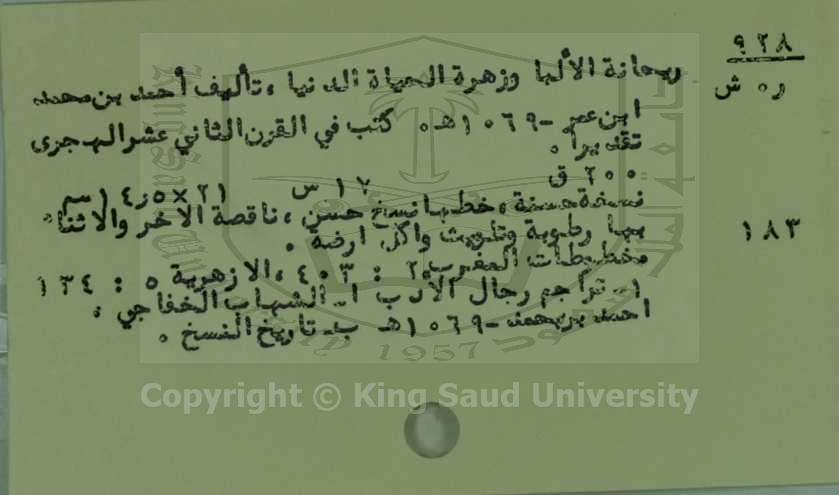 ٩٢٨
ر٠ ش
ريحانة الألبا وزهرة الحياة الدنيا ،تأليف أحمد بن محمد
ابن عمر -١٠٦٩هـ٠ كتب في القرن الثاني عشر الهجرى
تقديرا ٠
٢٠٠ ق ١٧ س ٢١×١٤٫٥سم
نسخة حسنة ،خطها نسخ حسن ،ناقصة الآخر والاثناء
بها رطوبة وتلويث واكل ارضة ٠
١٨٣
مخطوطات المغرب٢ : ٤٠٣ ،الازهرية ٥ : ١٣٤
١ـ تراجم رجال الأدب أ ـ الشهاب الخفاجي ،
احمد بن محمد -١٠٦٩هـ ب ـ تاريخ النسخ ٠
1957
Copyright © King Saud University